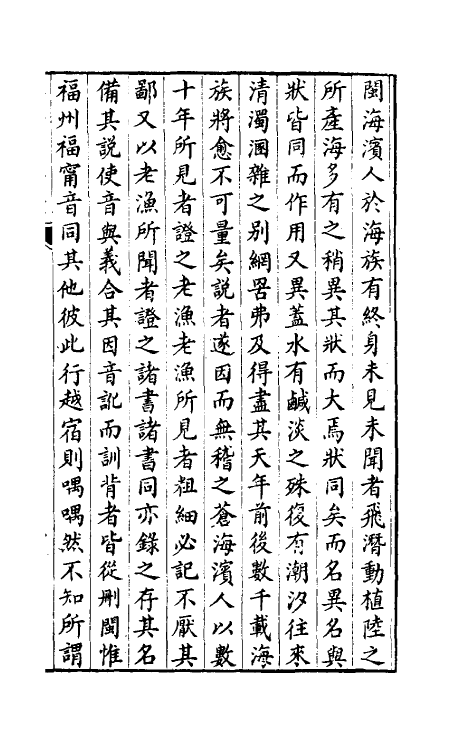 閩海濱人於海族有終身未見未聞者飛潛動植陸之
所產海多有之稍異其狀而大焉狀同矣而名異名與
狀皆同而作用又異蓋水有鹹淡之殊復有潮汐往來
清濁溷雜之别網罟弗及得盡其天年前後數千載海
族將愈不可量矣説者遂因而無稽之蒼海濱人以數
十年所見者證之老漁老漁所見者粗細必記不厭其
鄙又以老漁所聞者證之諸書諸書同亦錄之存其名
備其説使音與義合其因音訛而訓背者皆從刪閩惟
福州福甯音同其他彼此行越宿則喁喁然不知所謂